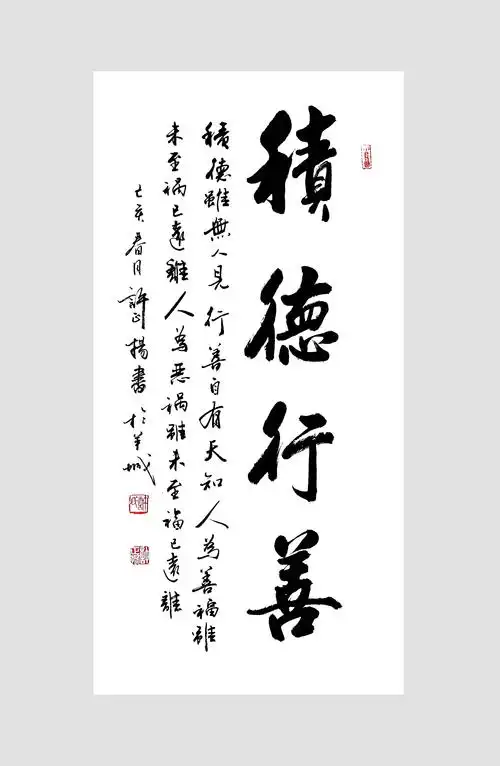 積德行善
積德雖無人見行善自有天知人為善福雖
未至禍已遠離人為惡禍雖未至福已遠離
己亥春月許武揚書於羊城